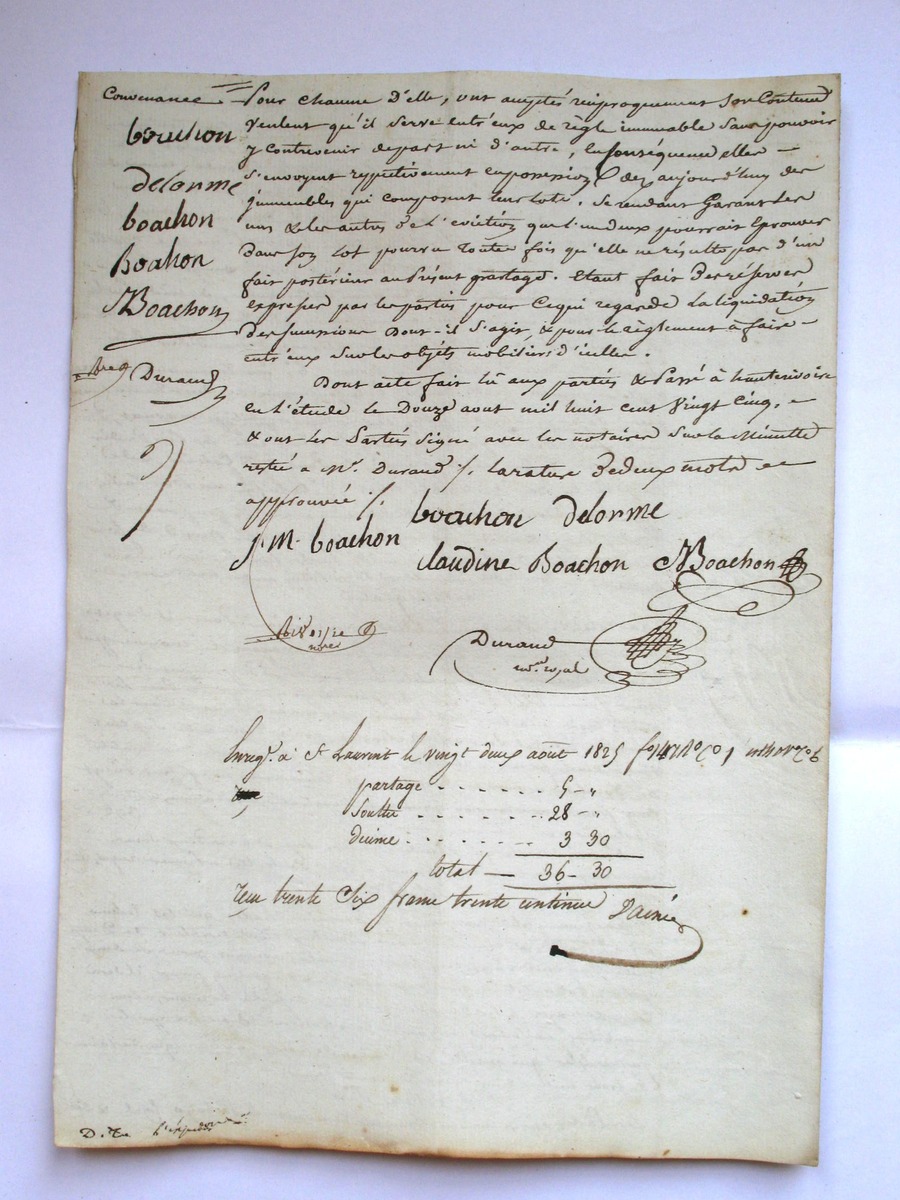 Convenance Pour chacune D'elle, ont accepté réciproquement Son Contenu
bouchon
delorme
boachon
Boachon
MBoachon
Durand
Veulent qu'il serve entr'eux de règle immuable Sans pouvoir
y contrevenir de part ni d'autre, en Conséquence elles
S'envoyent respectivement en possession dès aujourd'huy des
immeubles qui composent leur lots. Se rendant Garant les
uns & les autres de l'eviction que l'un deux pourrait Eprouver
Dans son lot pourvu toute fois qu'elle ne résulte pas d'un
fait postérieur au Présent partage. Etant fait des réserves
expresses par les parties pour Ce qui regarde La liquidation
Des successions Dont-il s'agit, & pour le règlement à faire
entr'eux Sur les objets mobiliers d'icelles.
Dont acte fait lû aux parties & Passé à hauterivoire
en l'étude le Douze aout mil huit cent Vingt Cinq,
& ont les Parties Signé avec les notaires Sur la Minutte
restée a Mr. Durand ./. la rature De deux mots
approuvée ./.
J M boachon bouchon delorme
claudine Boachon MBoachon
Durand
not. royal
Enreg. à St Laurent le vingt deux août 1825
partage . . . . . . 5 - "
Soulte . . . . . . . 28 - "
décime . . . . . . . 3 30
total — 36 - 30
reçu trente Six francs trente centimes